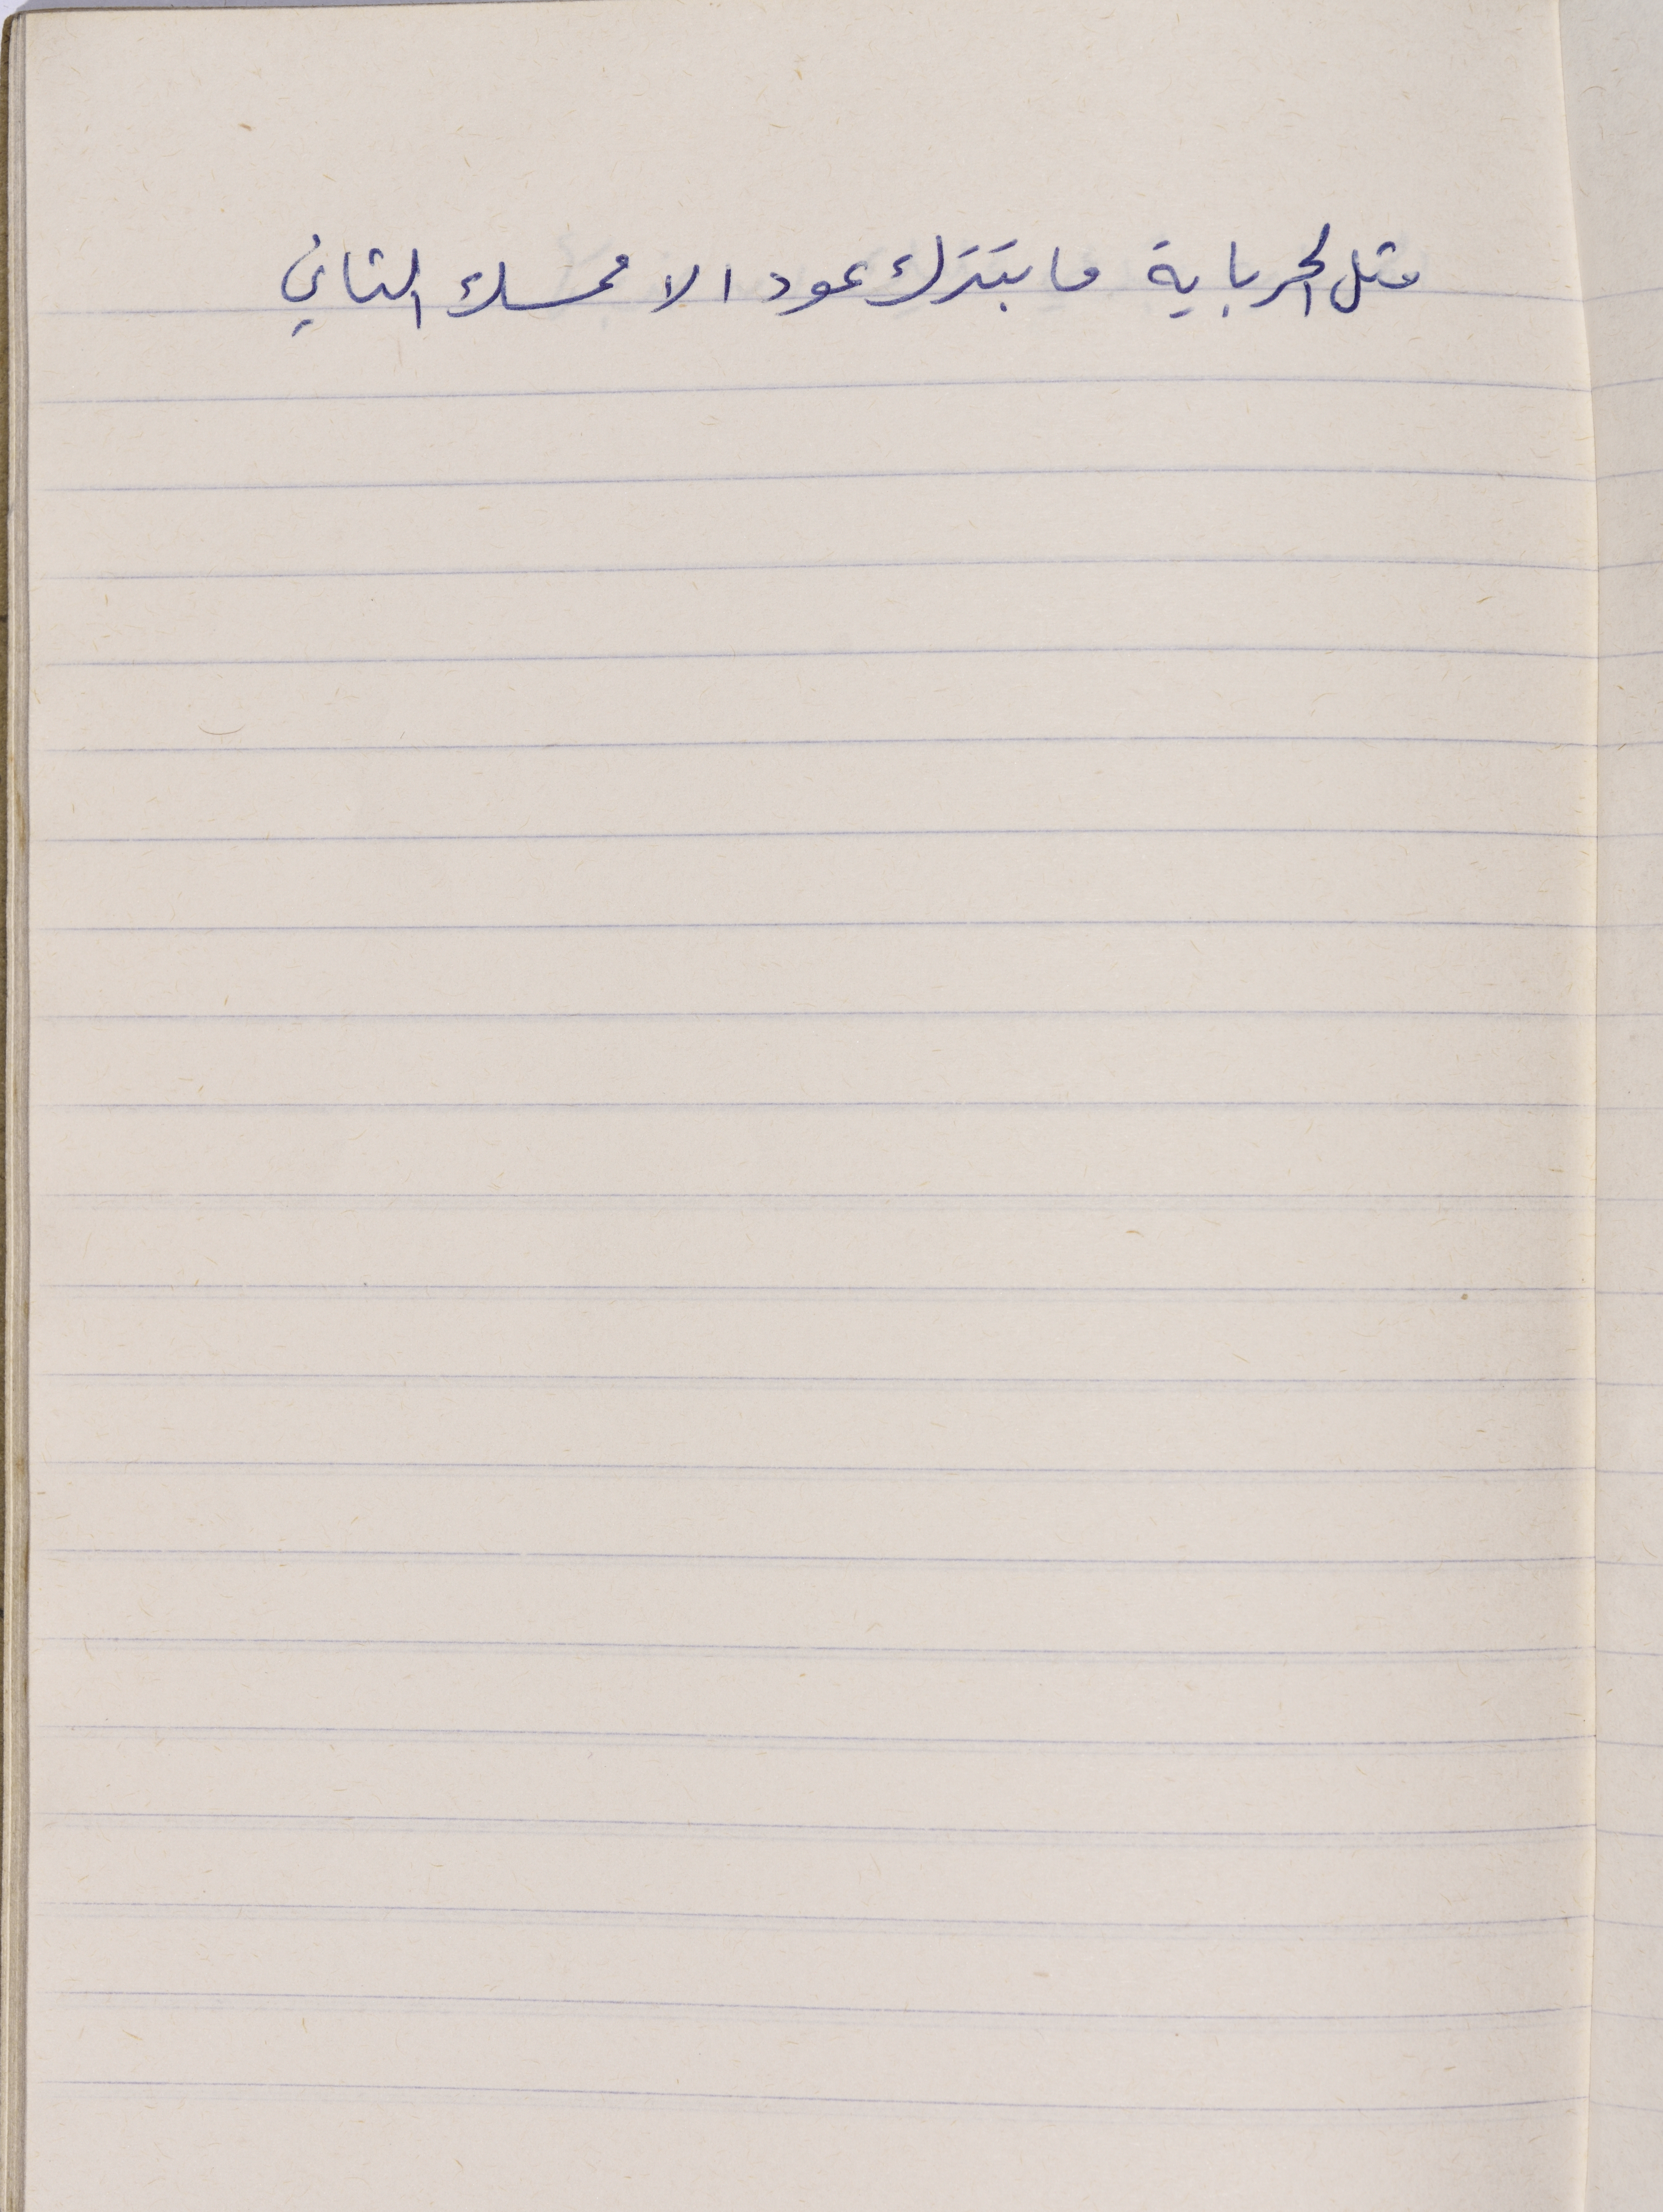 متل الحرباية ما بتترك عود الا ممسك التاني